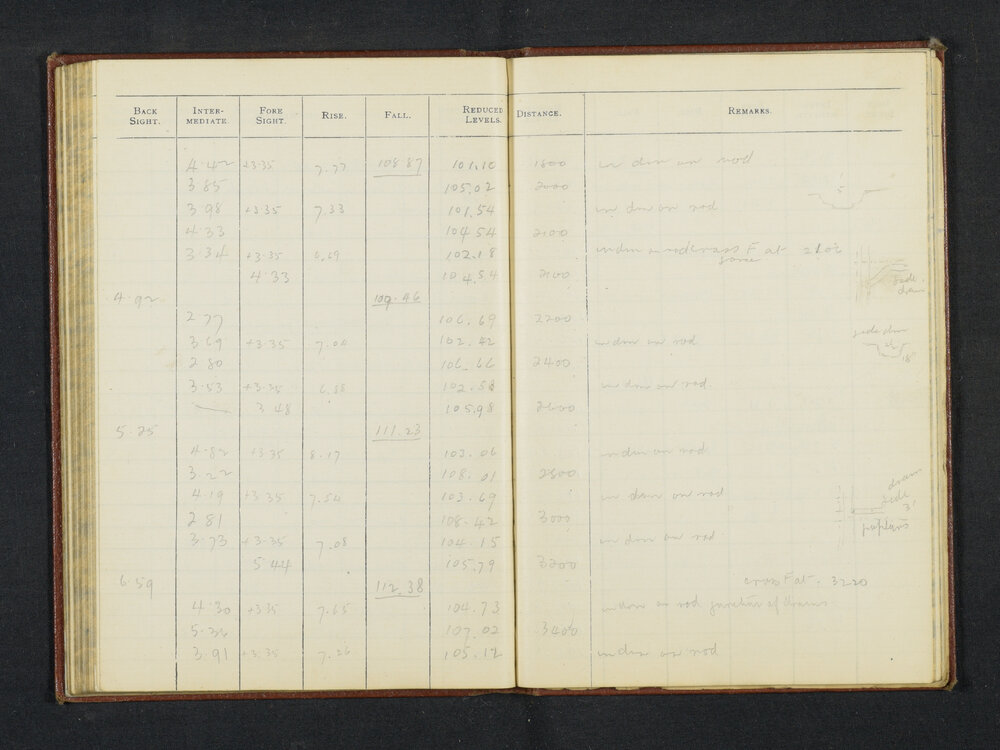 BACK SIGHT. INTER-MEDIATE FORE SIGHT. RISE. FALL. REDUCED LEVELS. DISTANCE. REMARKS.
4.42 +3.35 7.77 108.87 101.10 1800 in drn on rod
3.85 105.02 2000
3.98 +3.35 7.33 101.54 in drn on rod
4.33 104.54 2100
3.34 +3.35 6.69 102.18 in drn on rod cross F at
4.33 104.54 2100
side drain
4.92 109.46
2.77 106.69 2200
3.69 +3.35 7.04 102.42 in drn on rod
side drn
2.80 106.66 2400
18"
3.53 +3.35 6.88 102.58 in drn on rod
3.48 105.98 2600
5.25 111.23
4.82 +3.35 8.17 103.06 in drn on rod
3.22 108.01 2800
4.19 +3.35 7.54 103.69 in drn on rod
drain side 3'
2.81 108.42 3000
poplars
3.73 +3.35 7.08 104.15 in drn on rod
5.44 105.79 3200
6.59 112.38 cross F at. 3220
4.30 +3.35 7.65 104.73 in drn on rod junction of drains
5.36 107.02 3400
3.91 +3.35 7.26 105.12 in drn on rod